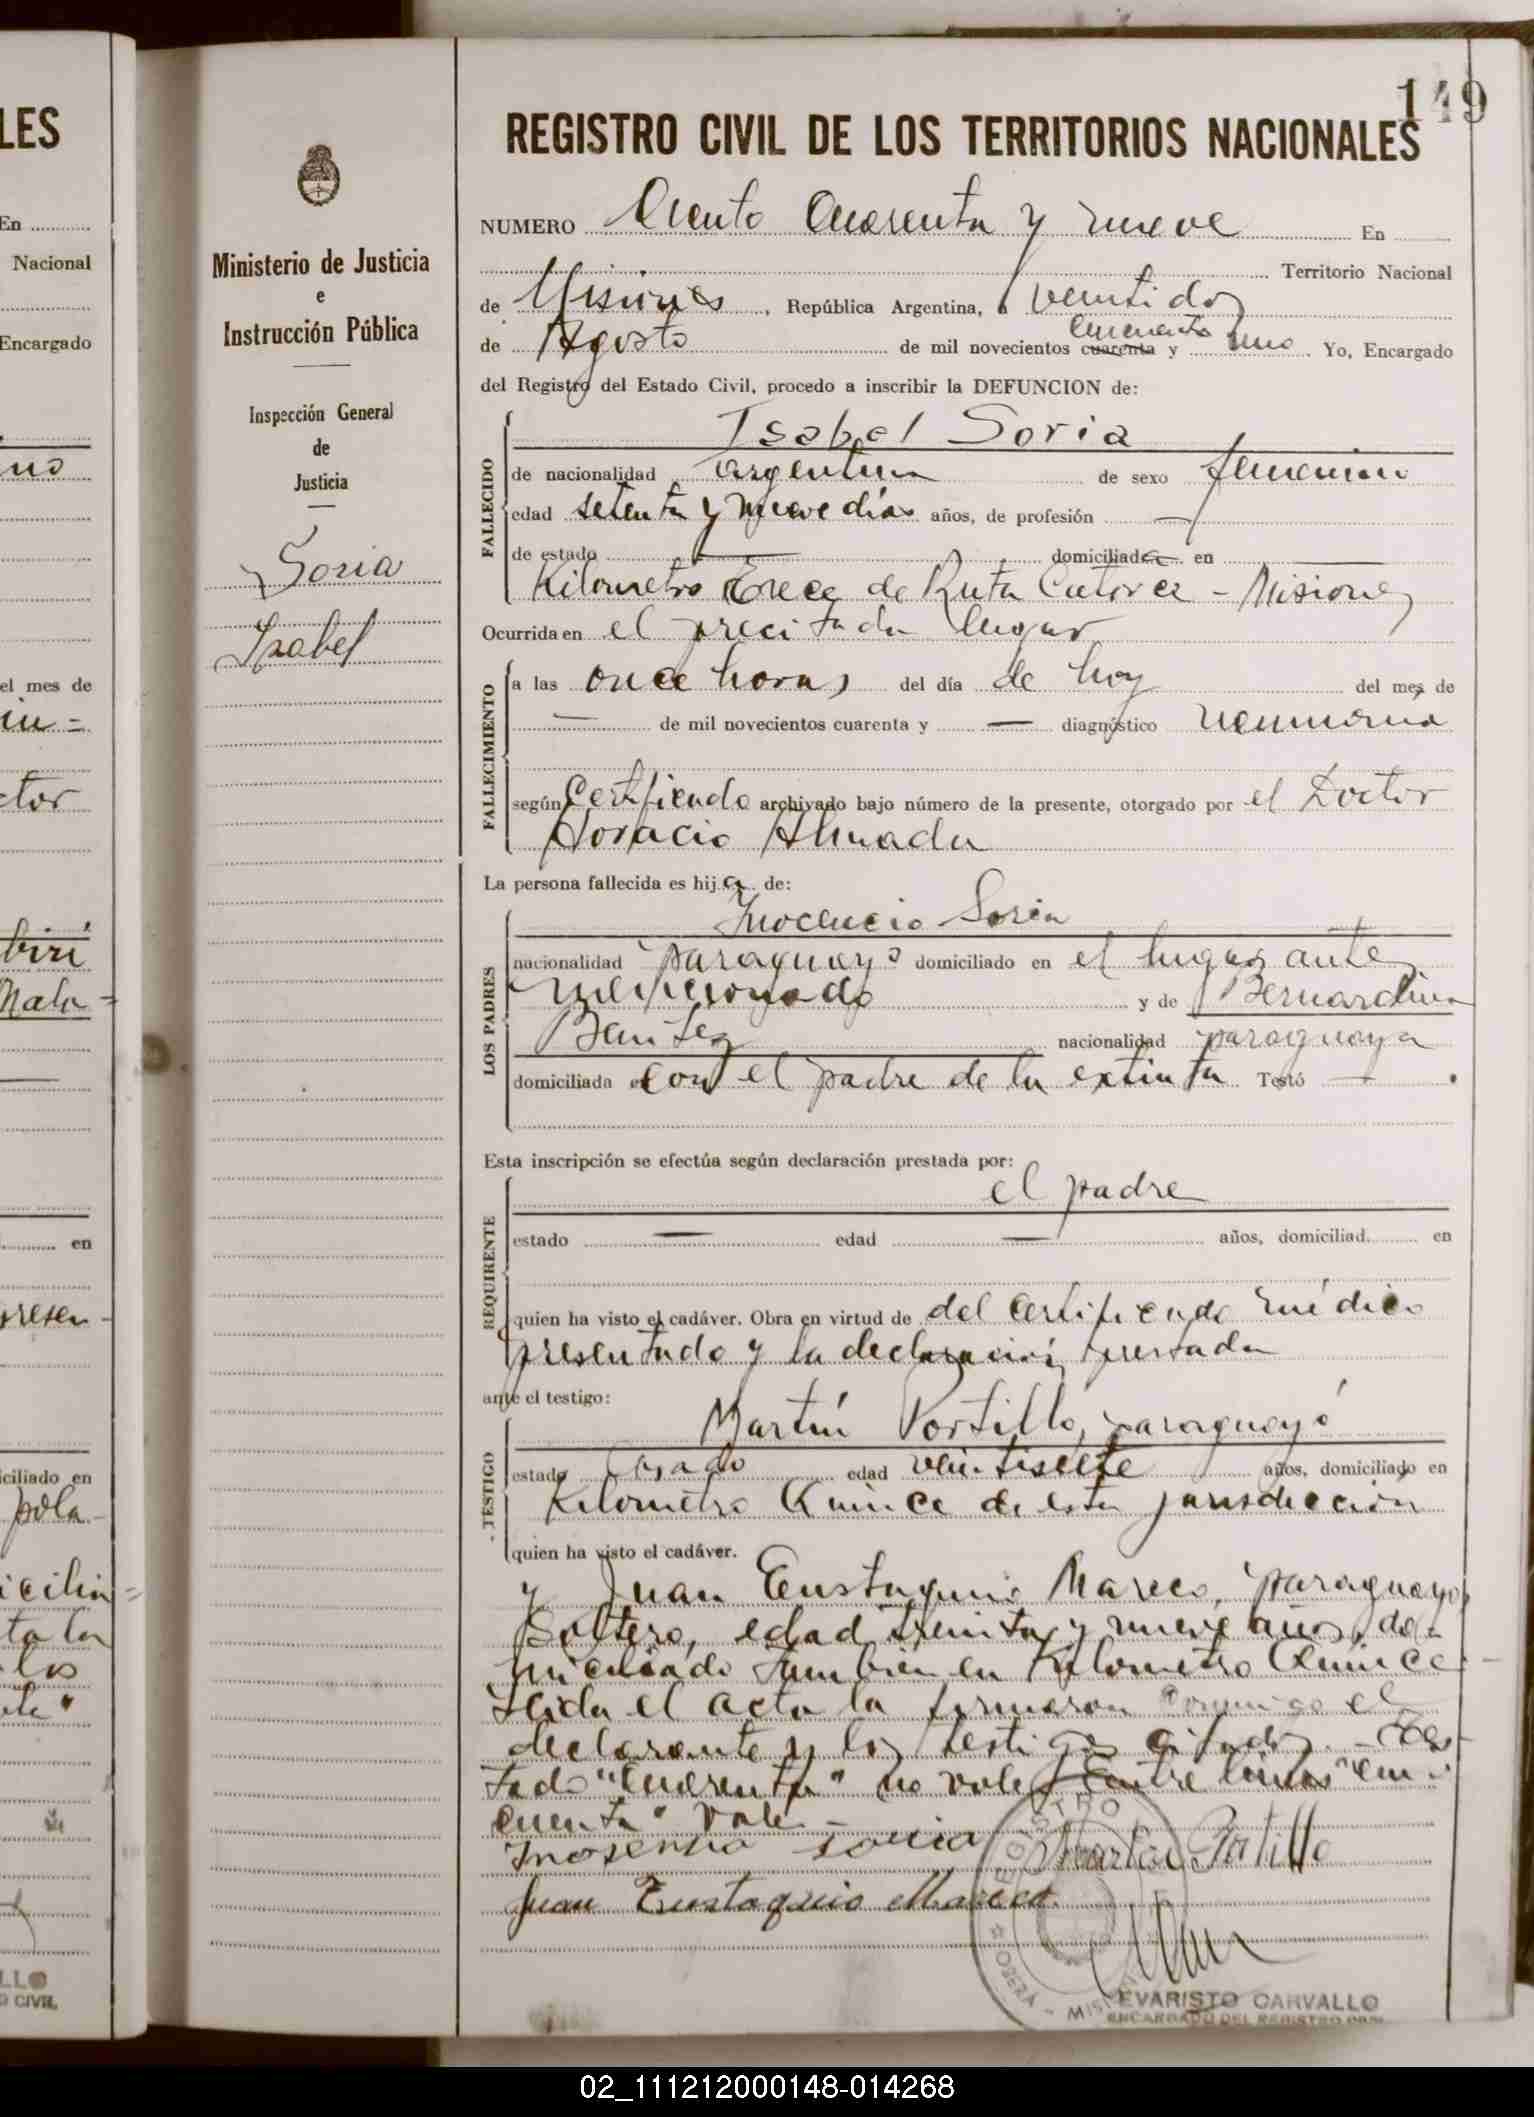 149
REGISTRO CIVIL DE LOS TERRITORIOS NACIONALES
Ministerio de Justicia
e
Instrucción Pública
Inspección General
de
Justicia
Soria
Isabel
NUMERO Ciento Cuarenta y nueve En
Territorio Nacional
de Misiones, República Argentina, a veintidos
cincuenta
de Agosto de mil novecientos cuarenta y uno. Yo, Encargado
del Registro del Estado Civil, procedo a inscribir la DEFUNCION de:
FALLECIDO
Isabel Soria
de nacionalidad argentina de sexo femenino
edad setenta y nueve días años, de profesión —
de estado — domiciliada en
Kilometro Trece de Ruta Catorce - Misiones
Ocurrida en el precitado lugar
FALLECIMIENTO
a las once horas del día de hoy del mes de
— de mil novecientos cuarenta y — diagnóstico neumonia
según Certificado archivado bajo número de la presente, otorgado por el Doctor
Horacio Almada
La persona fallecida es hija de:
LOS PADRES
Inocencio Soria
nacionalidad paraguayo domiciliado en el lugar ante
mencionado y de Bernardina
Benitez nacionalidad paraguaya
domiciliada con el padre de la extinta Testó — .
Esta inscripción se efectúa según declaración prestada por:
REQUIRENTE
el padre
estado — edad — años, domiciliad en
quien ha visto el cadáver. Obra en virtud de del certificado médico
presentado y la declaración prestada
ante el testigo:
TESTIGO
Martín Portillo, paraguayo
estado Casado edad veintisiete años, domiciliado en
Kilometro Quince de esta jurisdicción
quien ha visto el cadáver.
y Juan Eustaquio Mareco, paraguayo,
Soltero, edad treinta y nueve años, do-
miciliado tambien en Kilometro Quince
Leida el acta la firmaron conmigo el
declarante y los testigos citados. - Tes-
tado "cuarenta" no vale. Entre lineas "cin-
cuenta" vale. -
Inosensio soria Martin Portillo
Juan Eustaquio Mareco
REGISTRO
OBERA - MISIONES
EVARISTO CARVALLO
ENCARGADO DEL REGISTRO CIVIL
LES
En
Nacional
Encargado
el mes de
ctor
en
presen-
iciliado en
LLO
CIVIL
02_111212000148-014268